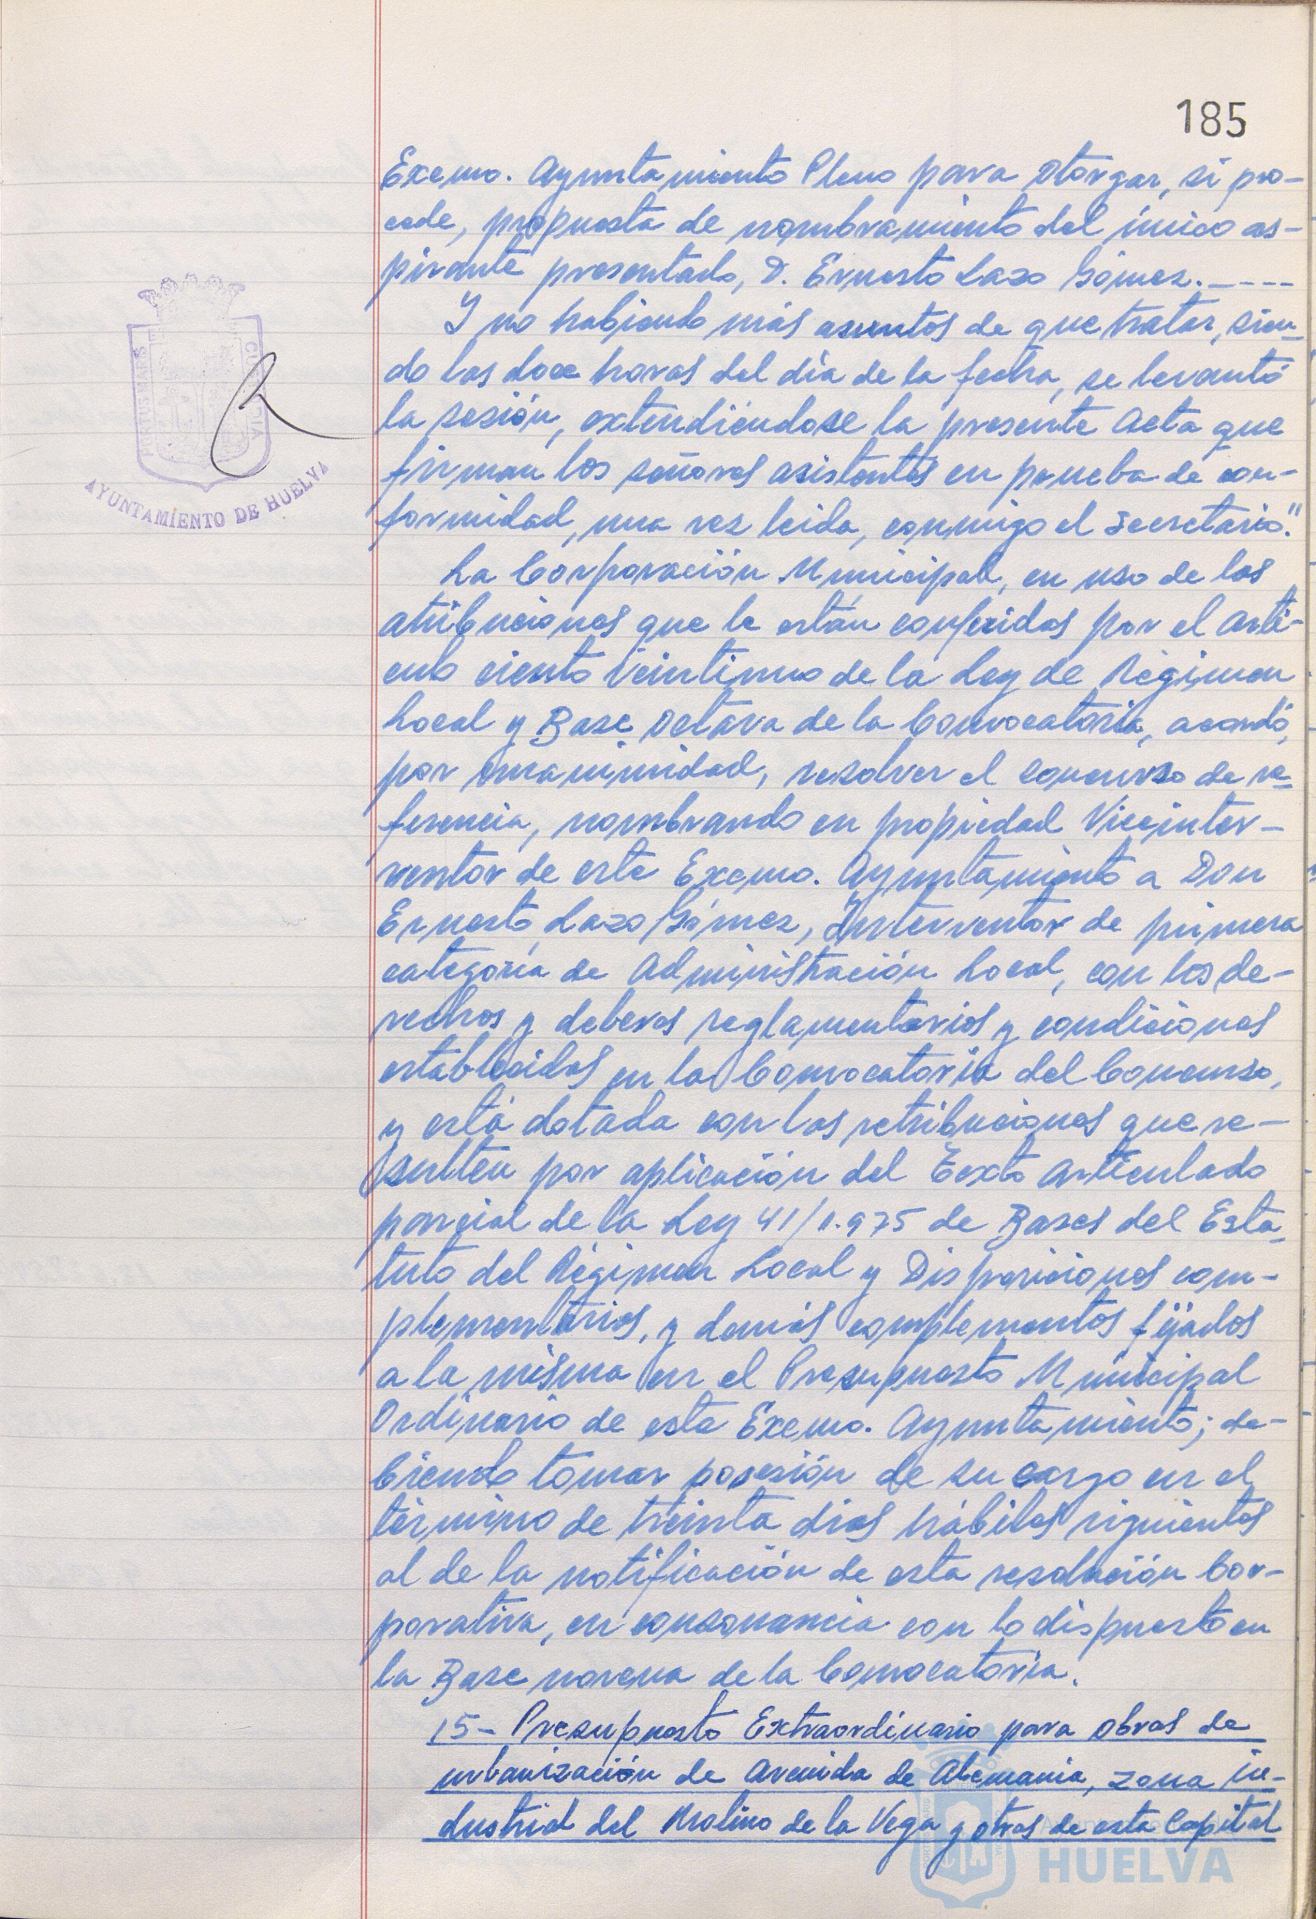 185
Excmo. Ayuntamiento Pleno para otorgar, si pro-
cede, propuesta de nombramiento del único as-
pirante presentado, D. Ernesto Lazo Gómez.----
Y no habiendo más asuntos de que tratar, sien-
do las doce horas del día de la fecha, se levantó
la sesión, extendiéndose la presente Acta que
firman los señores asistentes en prueba de con-
formidad, una vez leida, conmigo el Secretario."
La Corporación Municipal, en uso de las
atribuciones que le están conferidas por el artí-
culo ciento veintiuno de la Ley de Régimen
Local y Base octava de la Convocatoria, acordó,
por unanimidad, resolver el concurso de re-
ferencia, nombrando en propiedad Viceinter-
ventor de este Excmo. Ayuntamiento a Don
Ernesto Lazo Gómez, Interventor de primera
categoría de Administración Local, con los de-
rechos y deberes reglamentarios y condiciones
establecidas en la Convocatoria del Concurso,
y está dotada con las retribuciones que re-
sulten por aplicación del Texto articulado
parcial de la Ley 41/1.975 de Bases del Esta-
tuto del Régimen Local y Disposiciones com-
plementarias, y demás complementos fijados
a la misma en el Presupuesto Municipal
Ordinario de este Excmo. Ayuntamiento; de-
biendo tomar posesión de su cargo en el
término de treinta días hábiles siguientes
al de la notificación de esta resolución Cor-
porativa, en consonancia con lo dispuesto en
la Base novena de la Convocatoria.
15- Presupuesto Extraordinario para obras de
urbanización de Avenida de Alemania, zona in-
dustrial del Molino de la Vega y otras de esta Capital
PORTUS MARIS
CUSTODIA
AYUNTAMIENTO DE HUELVA
HUELVA